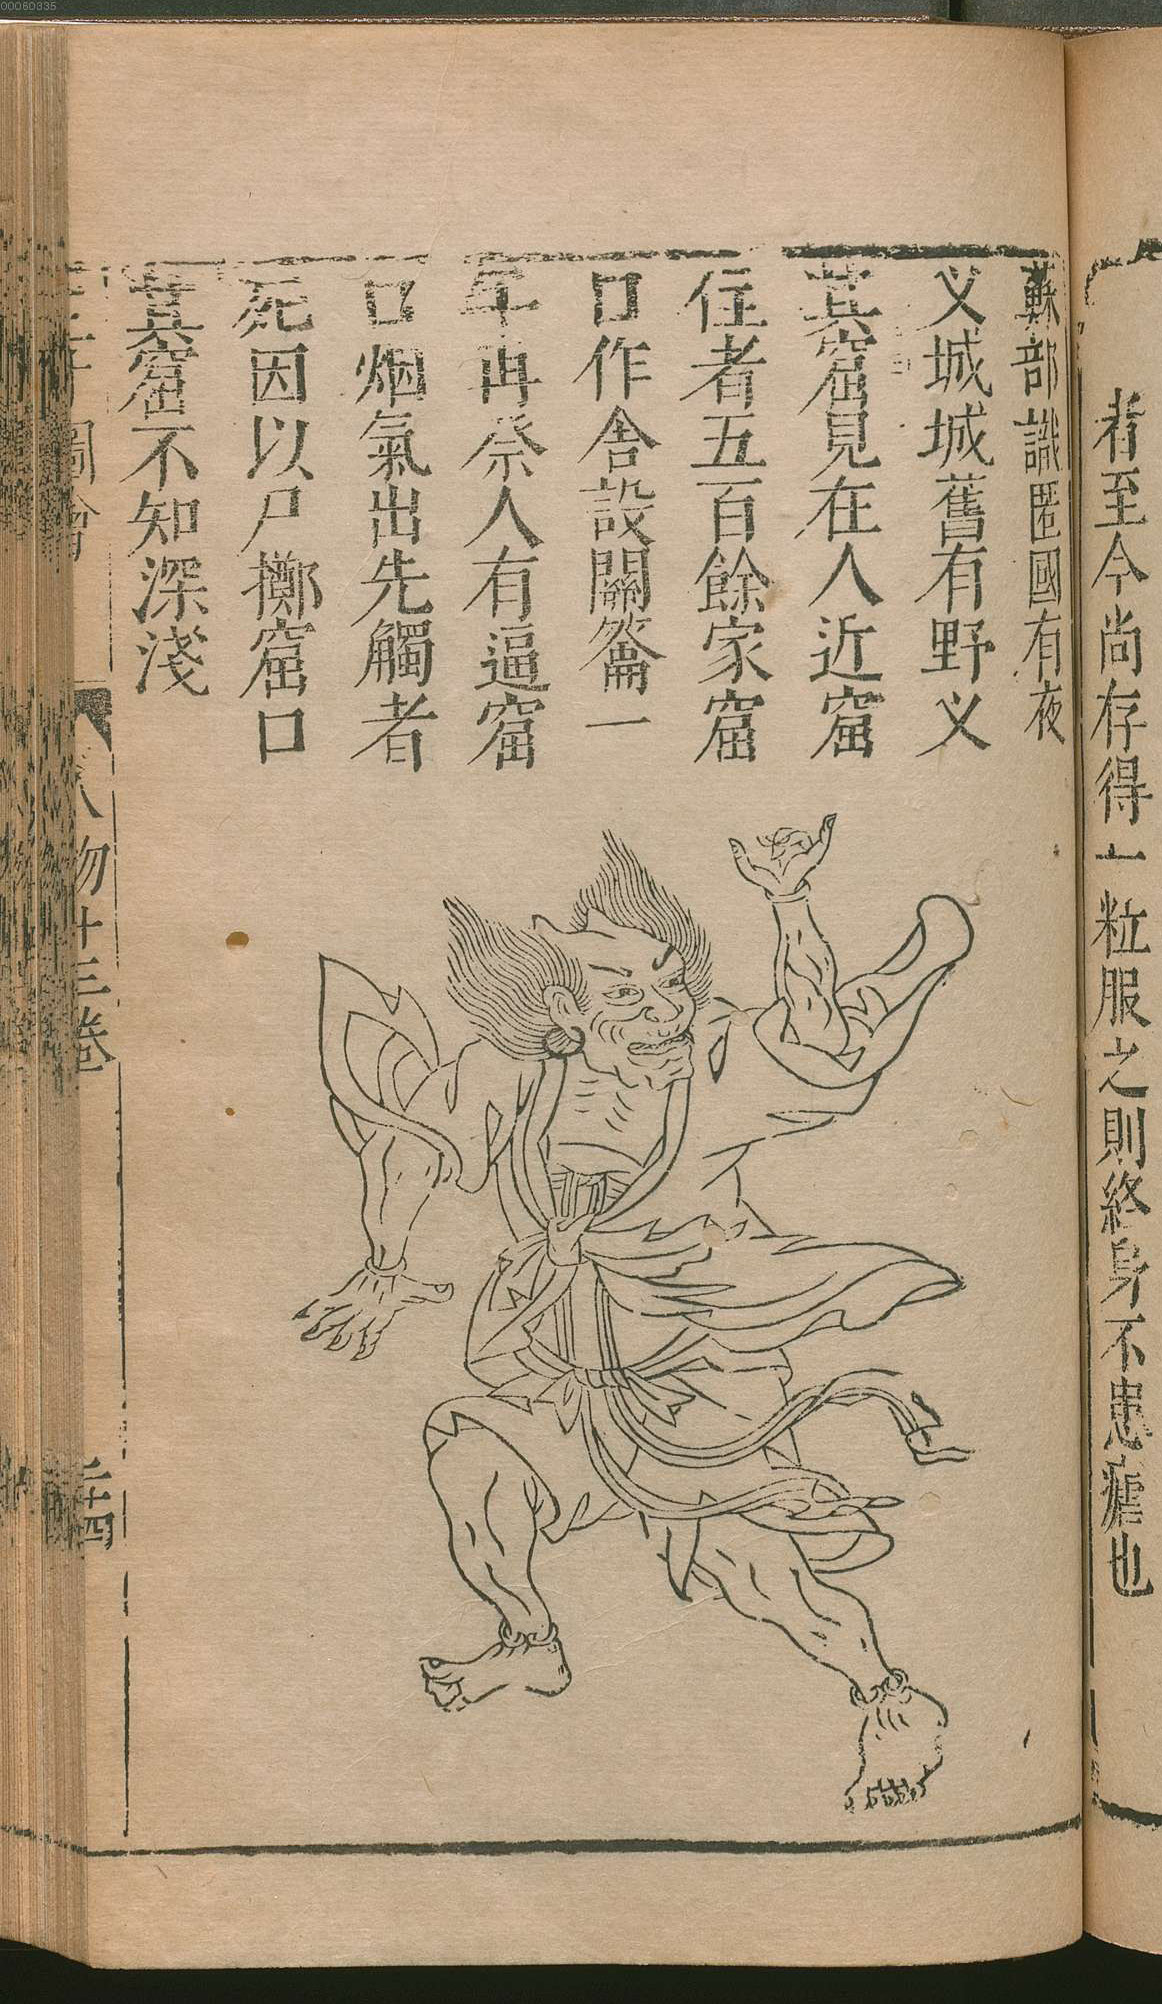 者至今尚存得一粒服之則終身不患瘧也
蘇部識匿國有夜
义城城舊有野义
其窟見在人近窟
住者五百餘家窟
口作舍設關籥一
年再祭人有逼窟
口烟氣出先觸者
死因以尸擲窟口
其窟不知深淺
圖會
人物十三卷
二十四
00080335